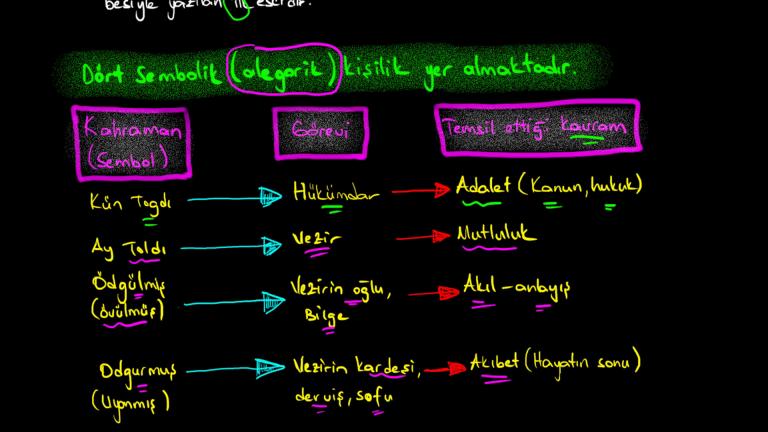 besiyle yazılan ilk eserdir.
Dört sembolik (alegorik) kişilik yer almaktadır.
Kahraman
(Sembol)
Görevi
Temsil ettiği kavram
Kün Togdı
Hükümdar
Adalet (Kanun, hukuk)
Ay Toldı
Vezir
Mutluluk
Ödgülmiş
(övülmüş)
Vezirin oğlu,
Bilge
Akıl - anlayış
Odgurmuş
(Uyanmış)
Vezirin kardeşi,
derviş, sofu
Akıbet (Hayatın sonu)